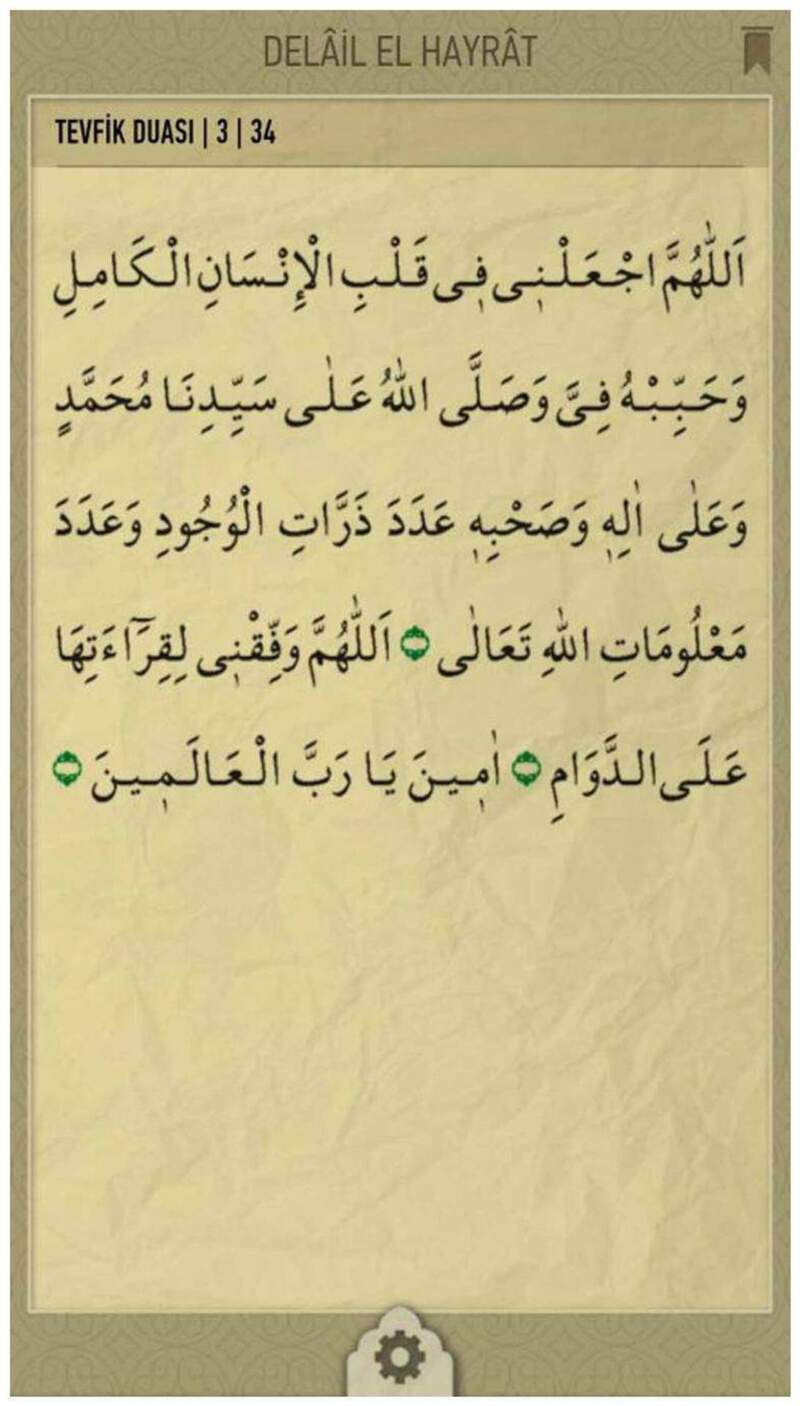 DELÂİL EL HAYRÂT
TEVFİK DUASI | 3 | 34
اَللّٰهُمَّ اجْعَلْنٖى فٖى قَلْبِ الْاِنْسَانِ الْكَامِلِ
وَحَبِّبْهُ فِىَّ وَصَلَّى اللّٰهُ عَلٰى سَيِّدِنَا مُحَمَّدٍ
وَعَلٰى اٰلِهٖ وَصَحْبِهٖ عَدَدَ ذَرَّاتِ الْوُجُودِ وَعَدَدَ
مَعْلُومَاتِ اللّٰهِ تَعَالٰى اَللّٰهُمَّ وَفِّقْنٖى لِقِرَٓاءَتِهَا
عَلَى الدَّوَامِ اٰمٖينَ يَا رَبَّ الْعَالَمٖينَ